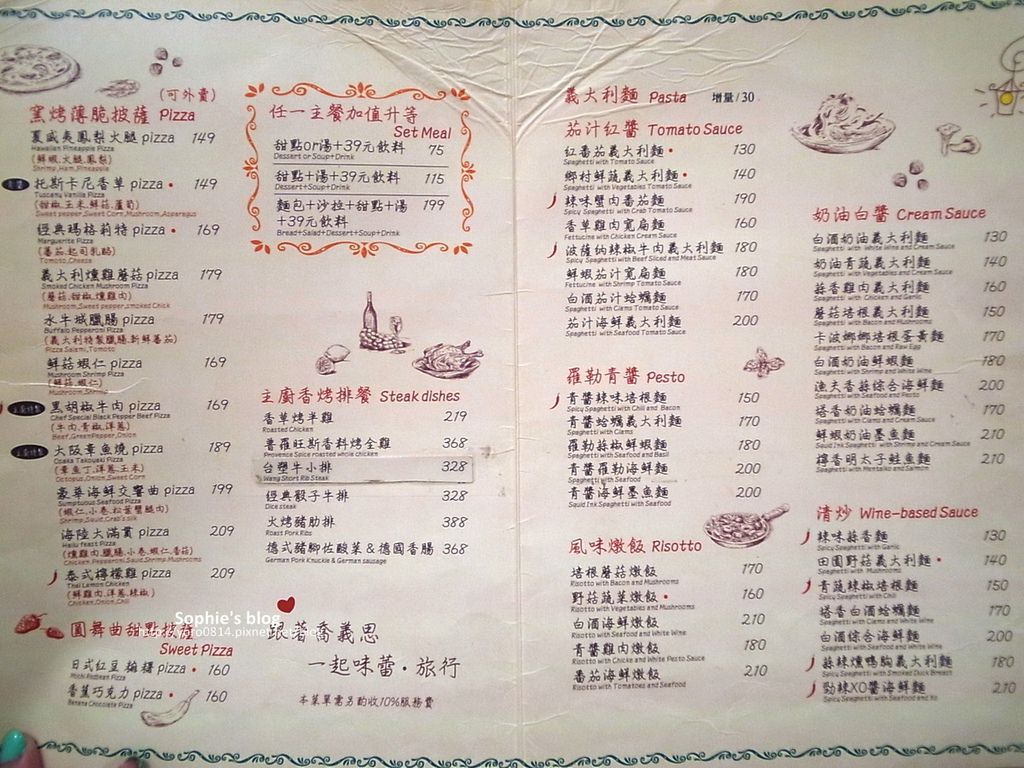 (可外賣)
窯烤薄脆披薩 Pizza
夏威夷鳳梨火腿 pizza 149
Hawaiian Pineapple Pizza
(鮮蝦,火腿,鳳梨)
Shrimp,Ham,Pineapple
托斯卡尼香草 pizza • 149
Tuscany Vanilla Pizza
(甜椒,玉米,鮮菇,蘆筍)
Sweet pepper,Sweet Corn,Mushroom,Asparagus
經典瑪格莉特 pizza • 169
Marguerite Pizza
(蕃茄,起司乳酪)
Tomato,Cheese
義大利燻雞蘑菇 pizza 179
Smoked Chicken Mushroom Pizza
(蘑菇,甜椒,燻雞肉)
Mushroom,Sweet pepper,smoked Chick
水牛城臘腸 pizza 179
Buffalo Pepperoni Pizza
(義大利特製臘腸,新鮮蕃茄)
Pizza Salami,Tomato
鮮菇蝦仁 pizza 169
Mushroom Shrimp Pizza
(鮮菇,蝦仁)
Mushroom,Shrimp
黑胡椒牛肉 pizza 169
Chef Special Black Pepper Beef Pizza
(牛肉,青椒,洋蔥)
Beef,GreenPepper,Onion
大阪章魚燒 pizza 189
Osaka Takoyaki Pizza
(章魚丁,洋蔥,玉米)
Octopus,Onion,Sweet Corn
豪華海鮮交響曲 pizza 199
Sumptuous Seafood Pizza
(蝦仁,小卷,松葉蟹腿肉)
Shrimp,Squid,Crab's silk
海陸大滿貫 pizza 209
Hailu feast Pizza
(燻雞肉,臘腸,小卷,蝦仁,香菇)
Chicken,Pepperoni,Squid,Shrimp,Mushrooms
泰式檸檬雞 pizza 209
Thai Lemon Chicken
(鮮雞肉,洋蔥,辣椒)
Chicken,Onion,Chili
圓舞曲甜點披薩
Sweet Pizza
日式紅豆麻糬 pizza • 160
Mochi Redbean Pizza
香蕉巧克力 pizza • 160
Banana Chocolate Pizza
任一主餐加值升等
Set Meal
甜點or湯+39元飲料 75
Dessert or Soup+Drink
甜點+湯+39元飲料 115
Dessert+Soup+Drink
麵包+沙拉+甜點+湯 199
+39元飲料
Bread+Salad+Dessert+Soup+Drink
主廚香烤排餐 Steak dishes
香草烤半雞 219
Roasted Chicken
普羅旺斯香料烤全雞 368
Provence Spice roasted whole chicken
台塑牛小排 328
Wang Short Rib Steak
經典骰子牛排 328
Dice steak
火烤豬肋排 388
Roast Pork Ribs
德式豬腳佐酸菜&德國香腸 368
German Pork Knuckle & German sausage
Sophie's blog
跟著喬義思
一起味蕾·旅行
本菜單需另酌收10%服務費
義大利麵 Pasta 增量/30
茄汁紅醬 Tomato Sauce
紅番茄義大利麵 • 130
Spaghetti with Tomato Sauce
鄉村鮮蔬義大利麵 • 140
Spaghetti with Vegetables Tomato Sauce
辣味蟹肉番茄麵 190
Spicy Spaghetti with Crab Tomato Sauce
香草雞肉寬扁麵 160
Fettucine with Chicken Cream Sauce
波薩納辣椒牛肉義大利麵 180
Spicy Spaghetti with Beef Sliced and Meat Sauce
鮮蝦茄汁寬扁麵 180
Fettucine with Shrimp Tomato Sauce
白酒茄汁蛤蠣麵 170
Spaghetti with Clams Tomato Sauce
茄汁海鮮義大利麵 200
Spaghetti with Seafood Tomato Sauce
羅勒青醬 Pesto
青醬辣味培根麵 150
Spicy Spaghetti with Chili and Bacon
青醬蛤蠣義大利麵 170
Spaghetti with Clams
羅勒蒜椒鮮蝦麵 180
Spaghetti with Seafood and Basil
青醬羅勒海鮮麵 200
Spaghetti with Seafood
青醬海鮮墨魚麵 200
Squid Ink Spaghetti with Seafood
風味燉飯 Risotto
培根蘑菇燉飯 170
Risotto with Bacon and Mushrooms
野菇蔬菜燉飯 • 160
Risotto with Vegetables and Mushrooms
白酒海鮮燉飯 210
Risotto with Seafood and White Wine
青醬雞肉燉飯 180
Risotto with Chicke and White Pesto Sauce
番茄海鮮燉飯 210
Risotto with Tomatoes and Seafood
奶油白醬 Cream Sauce
白酒奶油義大利麵 130
Spaghetti with White Wine and Cream Sauce
奶油青蔬義大利麵 140
Spaghetti with Vegetables and Cream Sauce
蒜香雞肉義大利麵 160
Spaghetti with Chicken and Garlic
蘑菇培根義大利麵 150
Spaghetti with Bacon and Mushrooms
卡波娜娜培根蛋黃麵 170
Spaghetti with Bacon and Raw Egg
白酒奶油鮮蝦麵 180
Spaghetti with Shrimp and White Wine
漁夫香蒜綜合海鮮麵 200
Spaghetti with Seafood and Pesto
塔香奶油蛤蠣麵 170
Spaghetti with Clams and Cream Sauce
鮮蝦奶油墨魚麵 210
Squid Ink Spaghetti with Shrimp and Cream Sauce
檸香明太子鮭魚麵 210
Spaghetti with Mentaiko and Salmon
清炒 Wine-based Sauce
辣味蒜香麵 130
Spicy Spaghetti with Garlic
田園野菇義大利麵 • 140
Spaghetti with Mushroom
青蔬辣椒培根麵 150
Spicy Spaghetti with Chili and Bacon
塔香白酒蛤蠣麵 170
Spaghetti with Clams and White Wine
白酒綜合海鮮麵 200
Spaghetti with Seafood and White Wine
蒜辣燻鴨胸義大利麵 180
Spicy Spaghetti with Smoked Duck Breast
勁辣XO醬海鮮麵 210
Spicy Spaghetti with Seafood and Xo